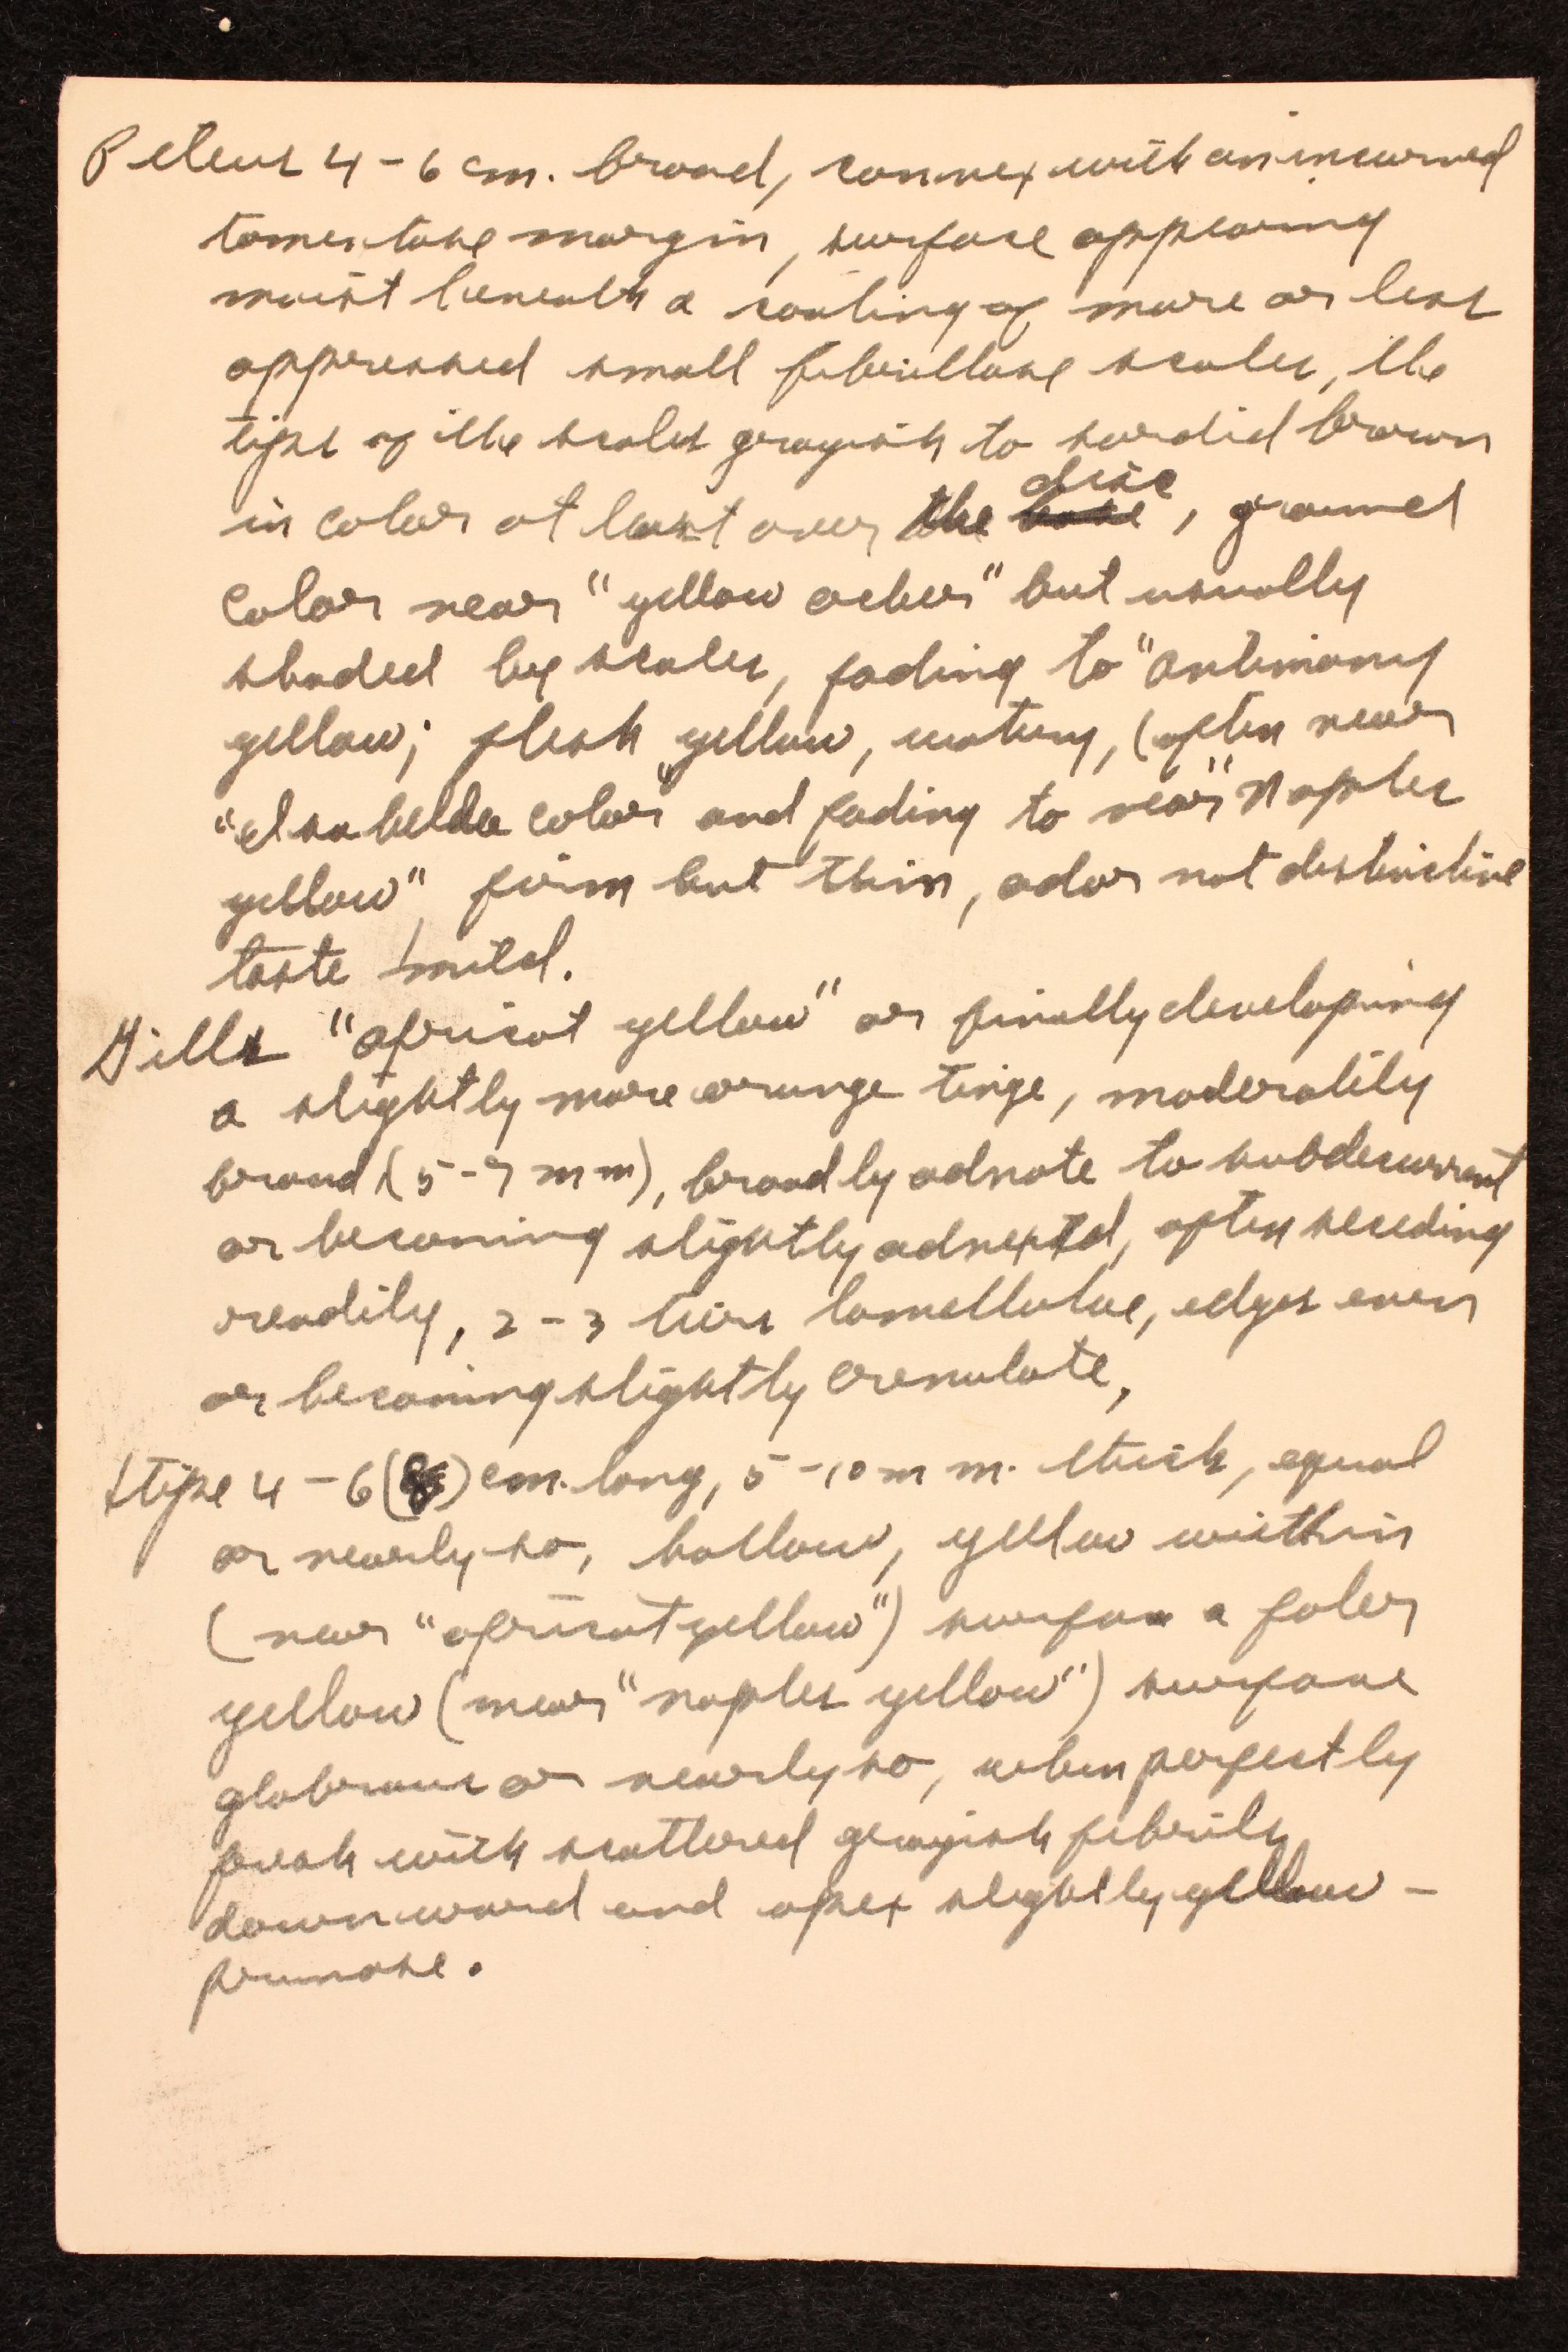 Pileus 4-6 cm. broad, convex with an incurved
tomentose margin, surface appearing
moist beneath a coating of more or less
appressed small fibrillose scales, the
tips of the scales grayish to sordid brown
in color at least over the disc, ground
color near "yellow ocher" but usually
shaded by scales, fading to "antimony
yellow; flesh yellow, watery, (often near
"Isabella color" and fading to near "Naples
yellow" firm but thin, odor not distinctive
taste mild.
Gills "apricot yellow" or finally developing
a slightly more orange tinge, moderatily
broad (5-7 mm), broadly adnate to subdecurrent
or becoming slightly adnexed, often seceding
readily, 2-3 tiers lamellulae, edges even
or becoming slightly crenulate,
Stipe 4-6(8) cm. long, 5-10 mm. thick, equal
or nearly so, hollow, yellow within
(near "apricot yellow") surface a paler
yellow (near "naples yellow") surface
glabrous or nearly so, when perfectly
fresh with scattered grayish fibrils
downward and apex slightly yellow-
pruinose.